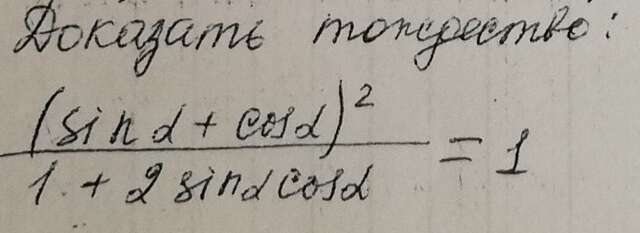 Доказать тождество:
(sin α + cos α)²
1 + 2 sin α cos α
= 1